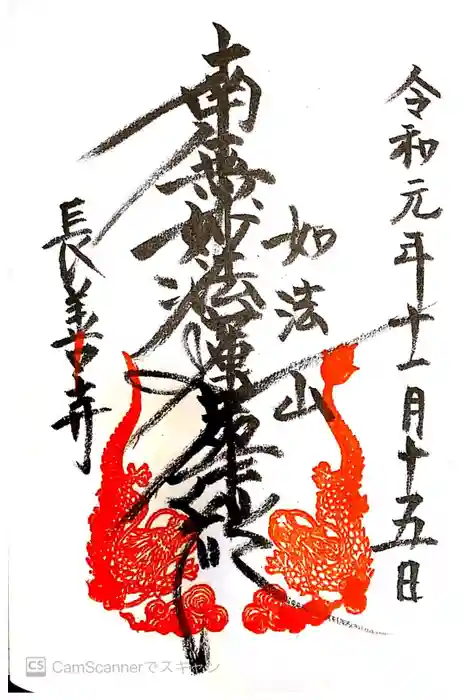 令和元年十一月十五日
如法山
南無妙法蓮華経
長善寺
CS CamScannerでスキャン